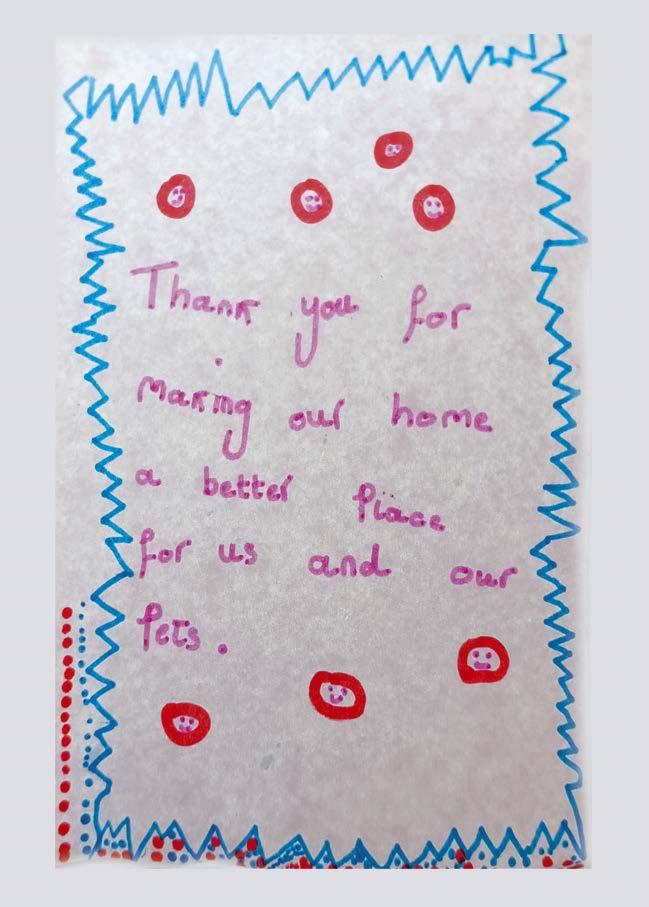 Thank you for
making our home
a better place
for us and our
pets.